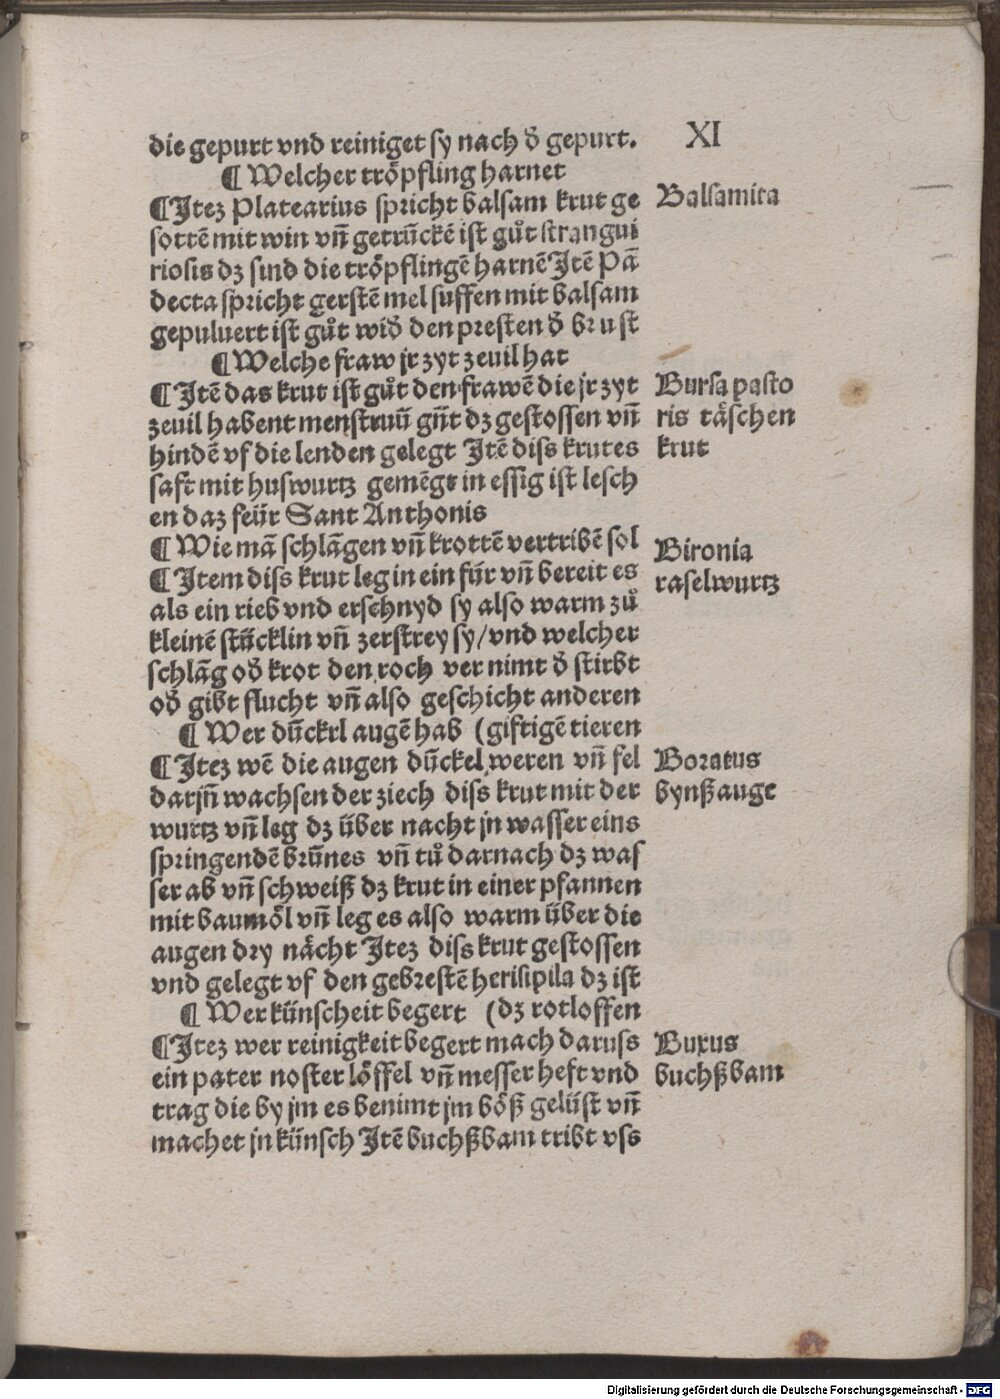 XI
die gepurt vnd reiniget sy nach d̕ gepurt.
¶ Welcher tröpfling harnet
Balsamita
¶ Itez Platearius spricht balsam krut ge
sottē mit win vn̄ getrūckē ist gůt strangui
riosis dz sind die tröpflingē harnē Itē Pā
decta spricht gerstē mel suffen mit balsam
gepuluert ist gůt wid̕ den presten d̕ brust
¶ Welche fraw jr zyt zeuil hat
Bursa pasto
ris täschen
krut
¶ Itē das krut ist gůt den frawē die jr zyt
zeuil habent menstruū gn̄t dz gestossen vn̄
hindē vf die lenden gelegt Itē diss krutes
saft mit huswurtz gemēgt in essig ist lesch
en daz feür Sant Anthonis
¶ Wie mā schlāgen vn̄ krottē vertribē sol
Bironia
raselwurtz
¶ Item diss krut leg in ein für vn̄ bereit es
als ein rieb vnd erschnyd sy also warm zů
kleinē stücklin vn̄ zerstrey sy/vnd welcher
schlāg od̕ krot den roch ver nimt d̕ stirbt
od̕ gibt flucht vn̄ also geschicht anderen
¶ Wer dūckrl augē hab (giftigē tieren
Boratus
bynßauge
¶ Itez wē die augen dūckel weren vn̄ fel
darjn̄ wachsen der ziech diss krut mit der
wurtz vn̄ leg dz über nacht jn wasser eins
springendē brūnes vn̄ tů darnach dz was
ser ab vn̄ schweiß dz krut in einer pfannen
mit baumöl vn̄ leg es also warm über die
augen dry nächt Itez diss krut gestossen
vnd gelegt vf den gebrestē herisipila dz ist
¶ Wer künscheit begert (dz rotloffen
Buxus
buchßbam
¶ Itez wer reinigkeit begert mach daruss
ein pater noster löffel vn̄ messer heft vnd
trag die by jm es benimt jm böß gelüst vn̄
machet jn künsch Itē buchßbam tribt vss
Digitalisierung gefördert durch die Deutsche Forschungsgemeinschaft - DFG